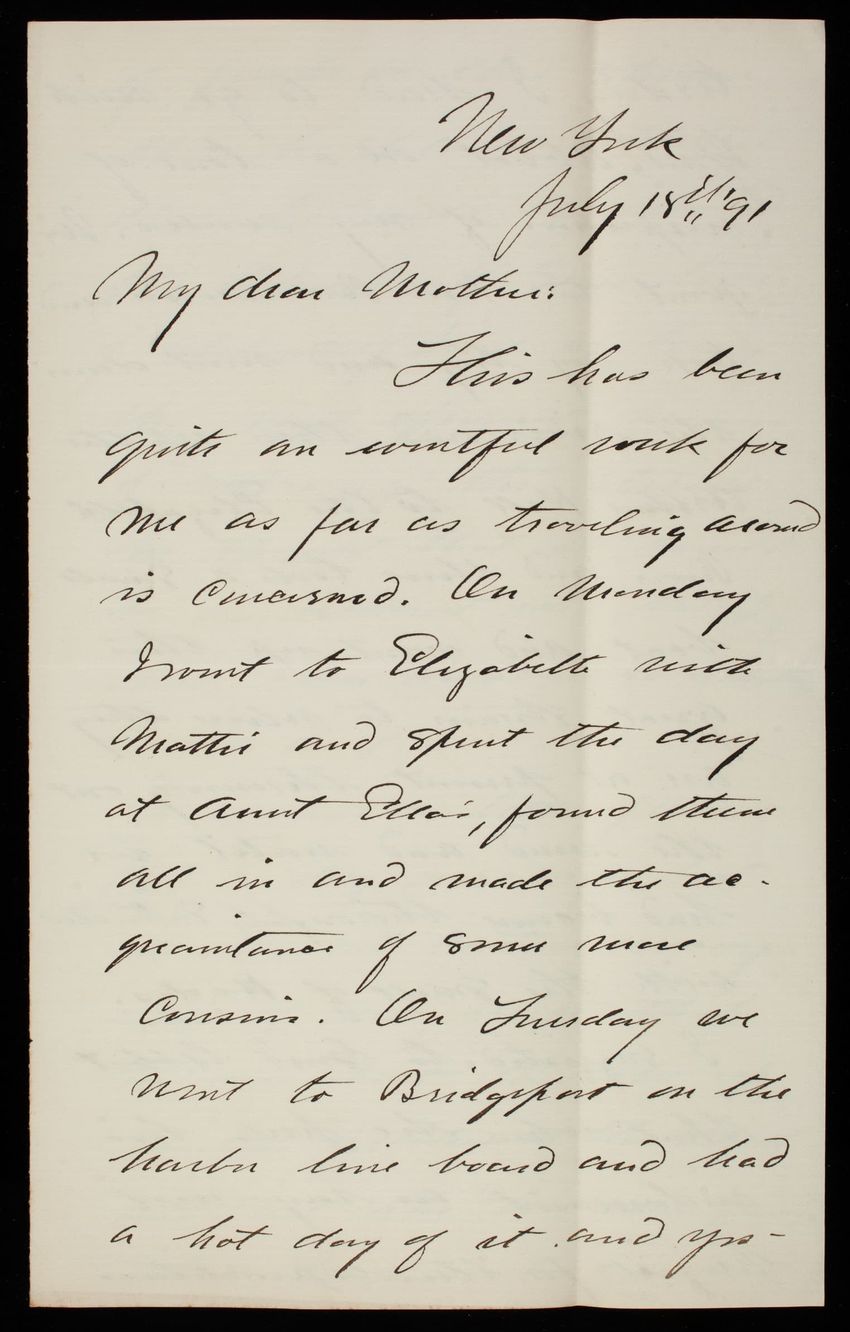 New York
July 18th "91
My dear Mother:
This has been
quite an eventful week for
me as far as traveling around
is concerned. On Monday
I went to Elizabeth with
Mattie and spent the day
at Aunt Ella's, found them
all in and made the ac-
quaintance of some more
Cousins. On Tuesday we
went to Bridgeport on the
harbor line board and had
a hot day of it. and yes-